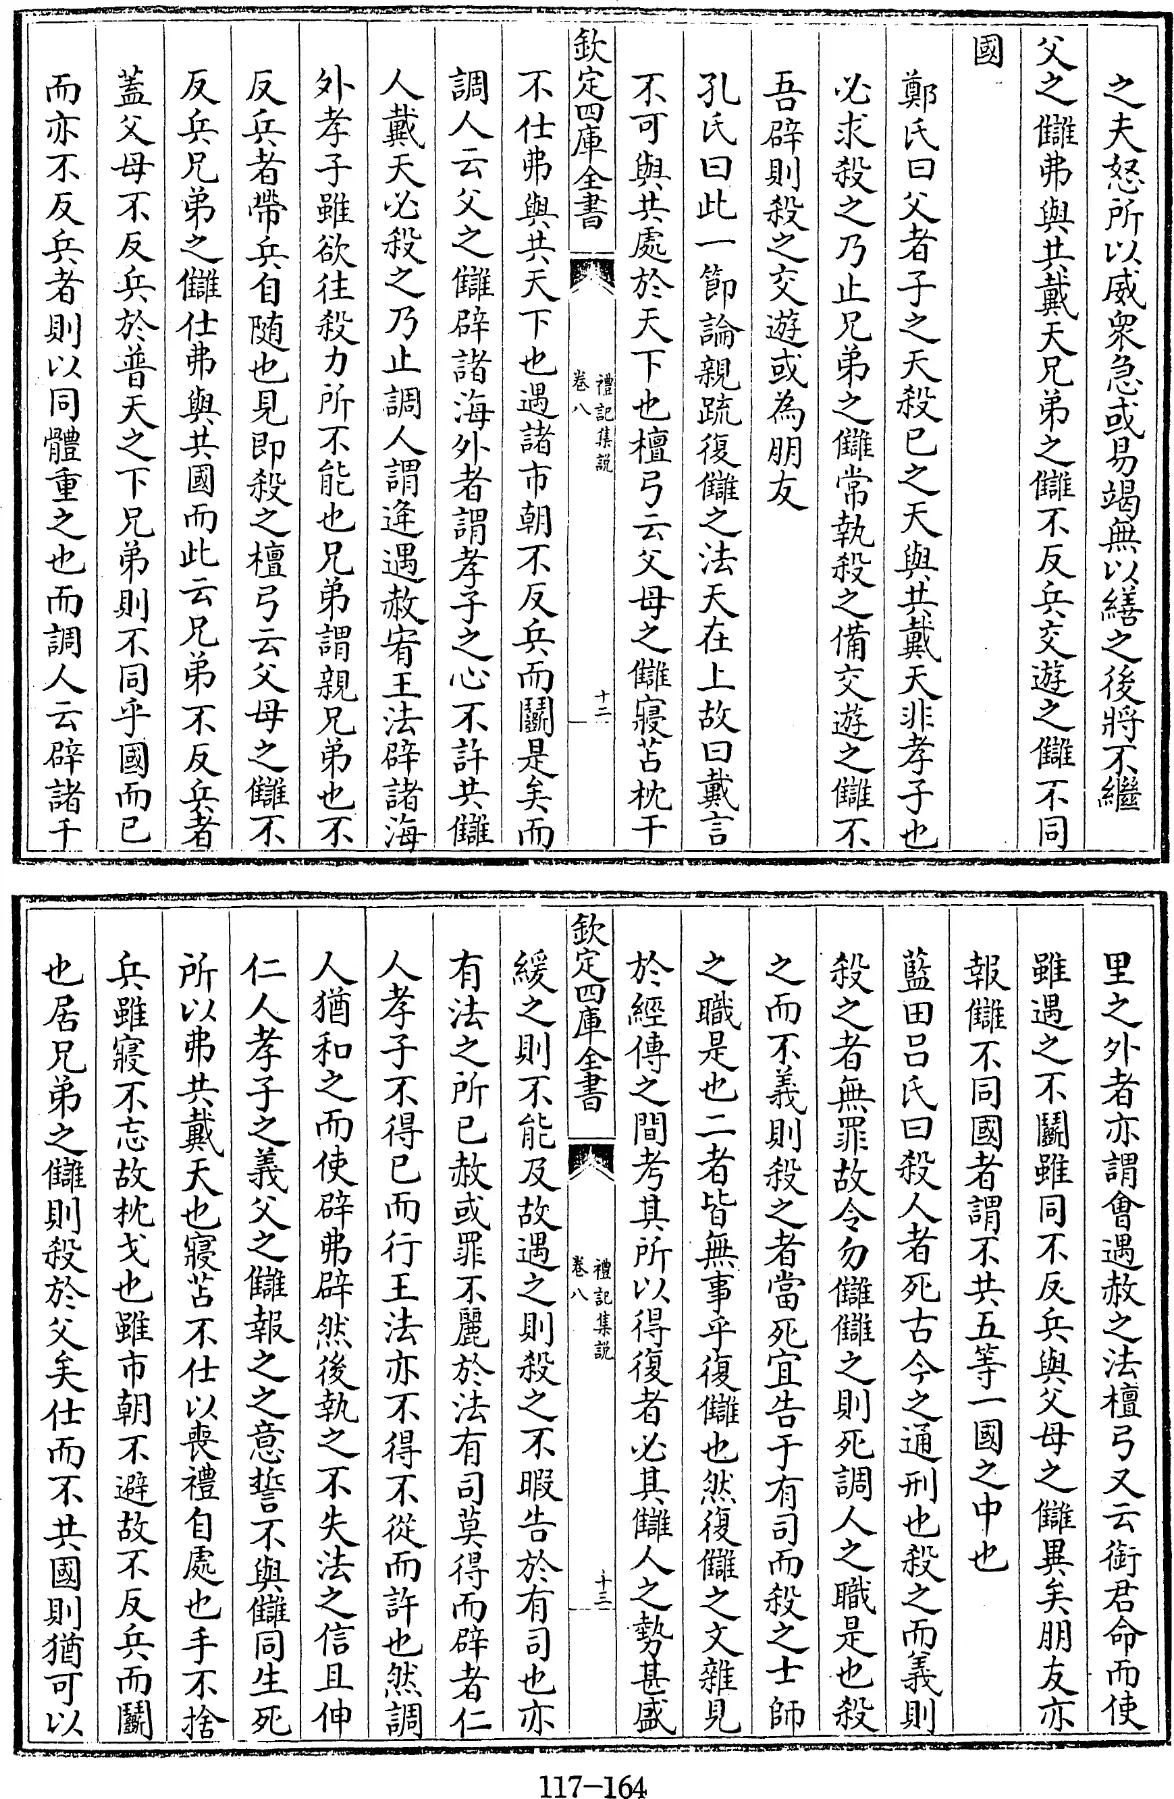 之夫怒所以威衆急或易竭無以繕之後將不繼
父之讎弗與共戴天兄弟之讎不反兵交遊之讎不同
國
鄭氏曰父者子之天殺已之天與共戴天非孝子也
必求殺之乃止兄弟之讎常執殺之備交遊之讎不
吾辟則殺之交遊或為朋友
孔氏曰此一節論親疏復讎之法天在上故曰戴言
不可與共處於天下也檀弓云父母之讎寢苫枕干
欽定四庫全書
禮記集説
卷八
十二
不仕弗與共天下也遇諸市朝不反兵而鬭是矣而
調人云父之讎辟諸海外者謂孝子之心不許共讎
人戴天必殺之乃止調人謂逢遇赦宥王法辟諸海
外孝子雖欲往殺力所不能也兄弟謂親兄弟也不
反兵者帶兵自随也見即殺之檀弓云父母之讎不
反兵兄弟之讎仕弗與共國而此云兄弟不反兵者
蓋父母不反兵於普天之下兄弟則不同乎國而已
而亦不反兵者則以同體重之也而調人云辟諸千
里之外者亦謂會遇赦之法檀弓又云銜君命而使
雖遇之不鬭雖同不反兵與父母之讎異矣朋友亦
報讎不同國者謂不共五等一國之中也
藍田呂氏曰殺人者死古今之通刑也殺之而義則
殺之者無罪故令勿讎讎之則死調人之職是也殺
之而不義則殺之者當死宜告于有司而殺之士師
之職是也二者皆無事乎復讎也然復讎之文雜見
於經傳之間考其所以得復者必其讎人之勢甚盛
欽定四庫全書
禮記集説
卷八
十三
緩之則不能及故遇之則殺之不暇告於有司也亦
有法之所已赦或罪不麗於法有司莫得而辟者仁
人孝子不得已而行王法亦不得不從而許也然調
人猶和之而使辟弗辟然後執之不失法之信且伸
仁人孝子之義父之讎報之之意誓不與讎同生死
所以弗共戴天也寢苫不仕以喪禮自處也手不捨
兵雖寢不忘故枕戈也雖市朝不避故不反兵而鬭
也居兄弟之讎則殺於父矣仕而不共國則猶可以
117-164